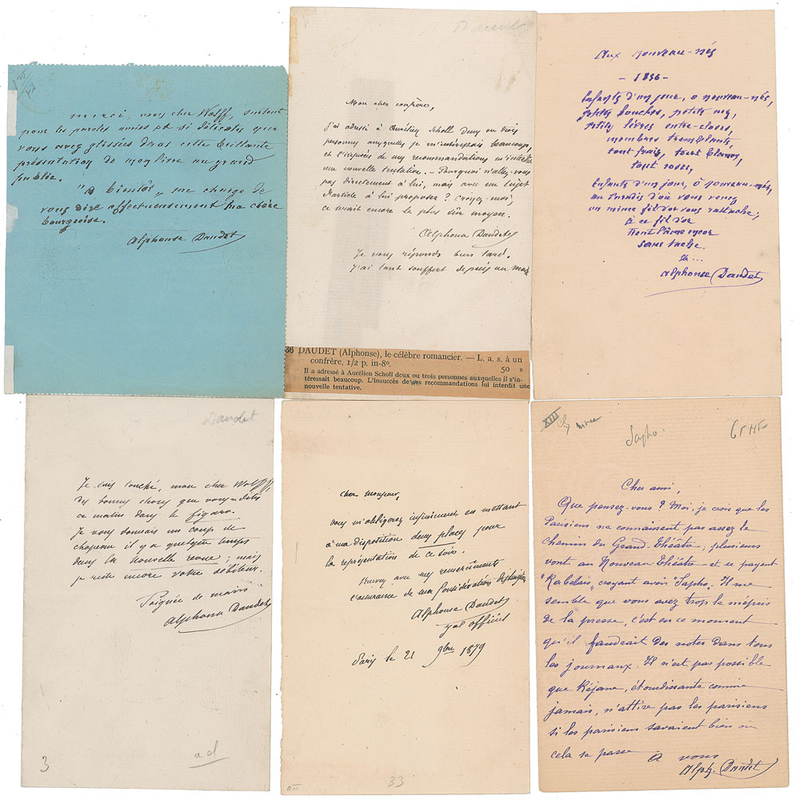 merci, mon cher Wolff, surtout
pour les paroles amies et si délicates que
vous avez glissées dans cette brillante
présentation de mon livre au grand
public.
"A bientôt" me charge de
vous dire affectueusement ma chère
bourgeoise.
Alphonse Daudet
Mon cher confrère,
J'ai adressé à Aurélien Scholl deux ou trois
personnes auxquelles je m'intéressais beaucoup,
et l'insuccès de mes recommandations m'interdit
une nouvelle tentative. — Pourquoi n'allez-vous
pas directement à lui, mais avec un sujet
d'article à lui proposer ? Croyez-moi,
ce serait encore le plus sûr moyen.
Alphonse Daudet
Je vous réponds bien tard.
J'ai tant souffert depuis un mois
36 DAUDET (Alphonse), le célèbre romancier. — L. a. s. à un
confrère, 1/2 p. in-8º. 50 »
Il a adressé à Aurélien Scholl deux ou trois personnes auxquelles il s'in-
téressait beaucoup. L'insuccès de ses recommandations lui interdit une
nouvelle tentative.
Aux nouveau-nés
- 1856 -
Enfants d'un jour, ô nouveau-nés,
petites bouches, petits nez,
petites lèvres entre-closes,
membres tremblants,
tout frais, tout blancs,
tout roses,
Enfants d'un jour, ô nouveau-nés,
au Paradis d'où vous venez
un mince fil d'or vous rattache;
A ce fil d'or
Tient l'âme encor
sans tache.
Alphonse Daudet
Daudet
Je suis touché, mon cher Wolff,
des bonnes choses que vous dites
ce matin dans le figaro.
Je vous donnais un coup de
chapeau il y a quelque temps
dans la Nouvelle revue; mais
je reste encore votre débiteur.
Poignée de mains
Alphonse Daudet
3
a d
Cher monsieur,
vous m'obligerez infiniment en mettant
à ma disposition deux places pour
la représentation de ce soir.
Recevez avec mes remerciements
l'assurance de ma considération distinguée
Alphonse Daudet
Paris le 21 9bre 1879
33
XIII
Sapho.
Cher ami,
Que pensez-vous ? Moi, je crois que les
Parisiens ne connaissent pas assez le
chemin du Grand-Théâtre; plusieurs
vont au Nouveau-Théâtre et se payent
"Rabelais" croyant avoir "Sapho". Il me
semble que vous avez trop le mépris
de la presse, c'est en ce moment
qu'il faudrait des notes dans tous
les journaux. Il n'est pas possible
que Réjane, étourdissante comme
jamais, n'attire pas les parisiens
si les parisiens savaient bien où
cela se passe
A vous
Alph. Daudet